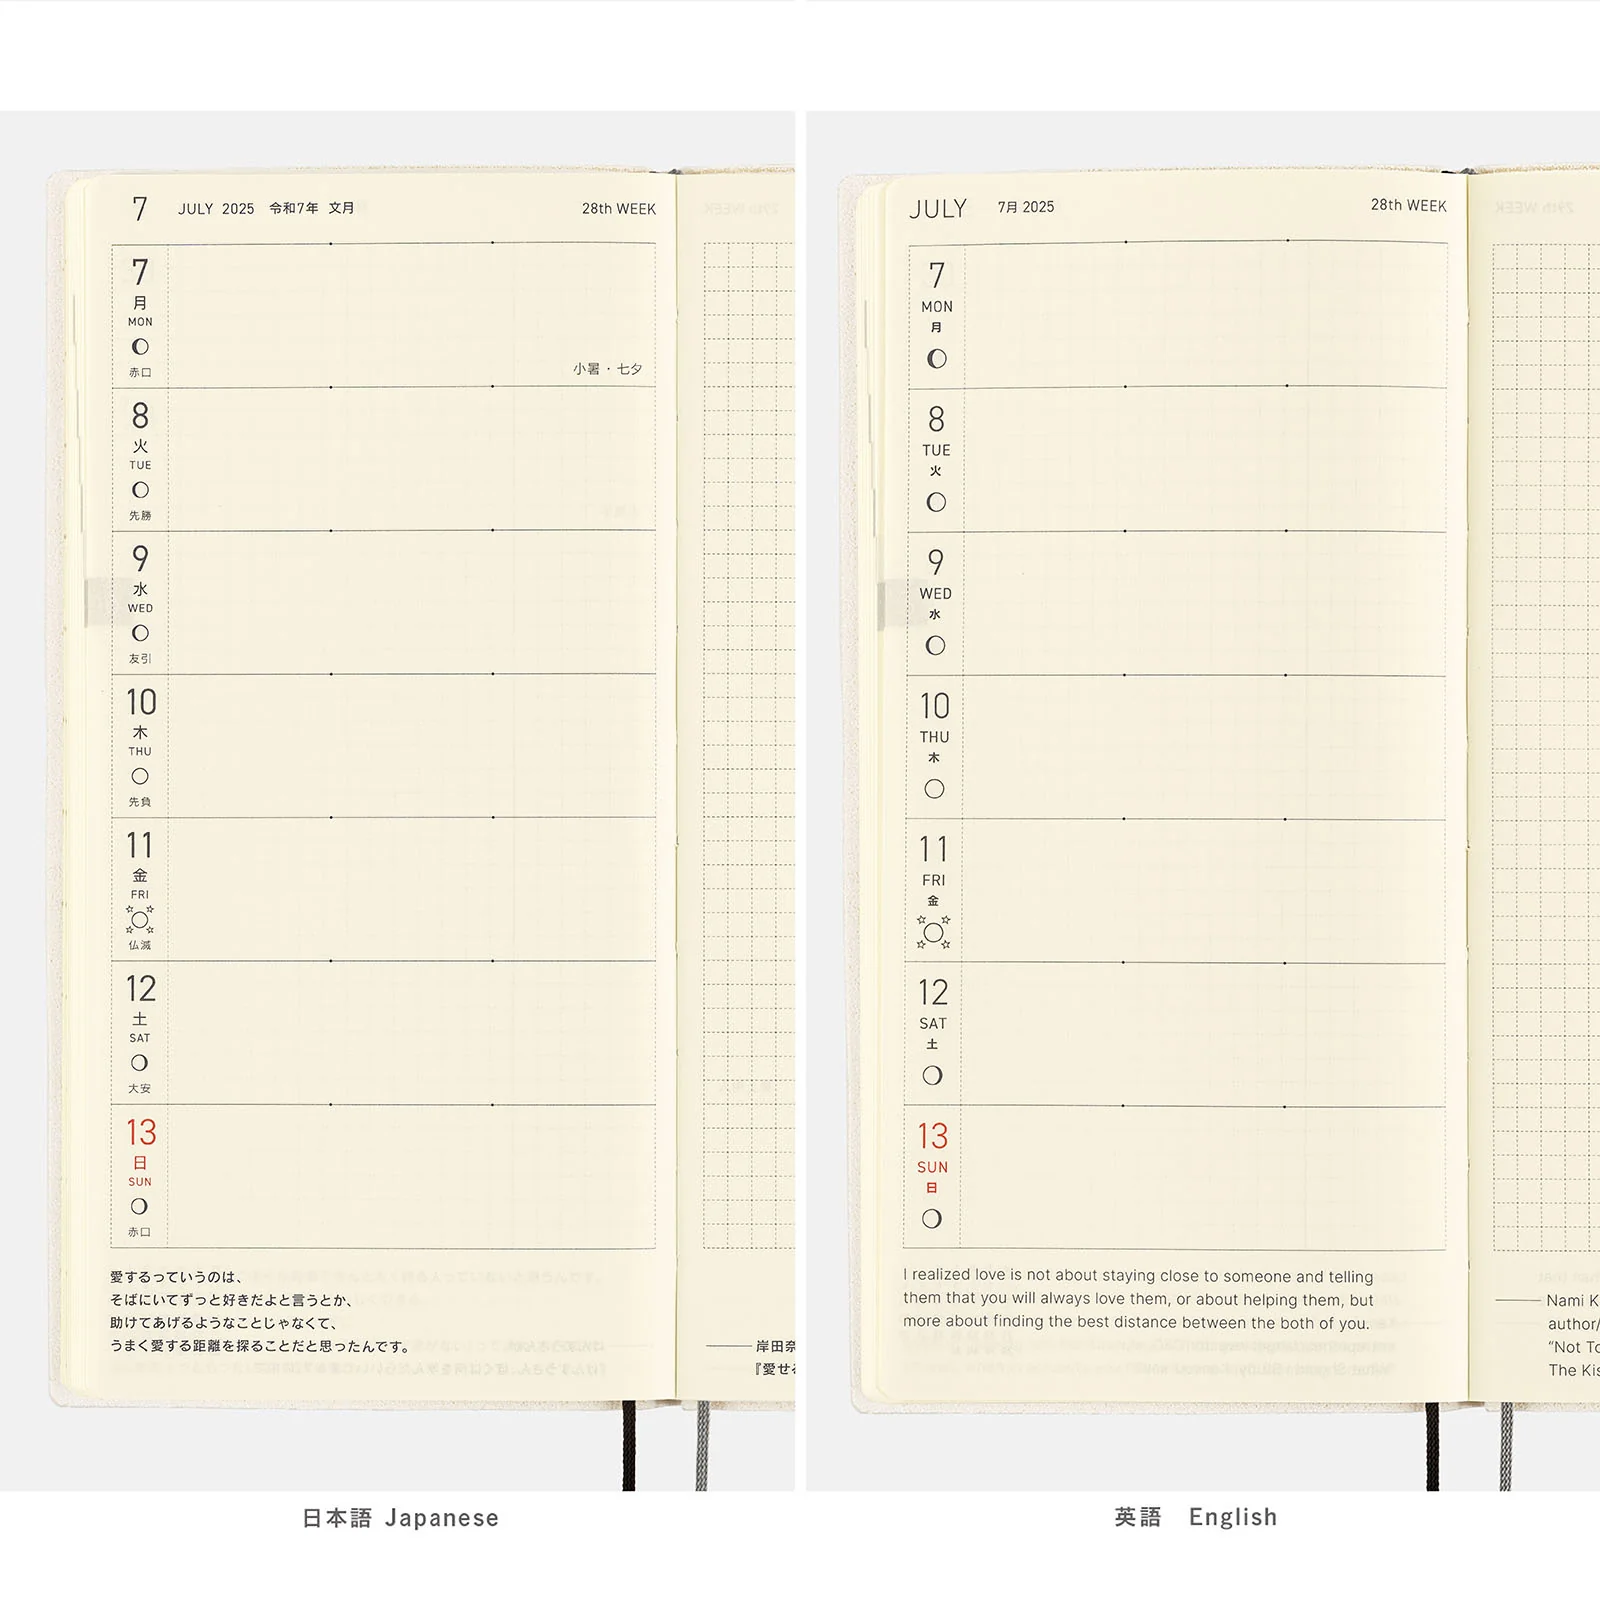 7 JULY 2025 令和7年 文月 28th WEEK
7
月
MON
赤口
小暑・七夕
8
火
TUE
先勝
9
水
WED
友引
10
木
THU
先負
11
金
FRI
仏滅
12
土
SAT
大安
13
日
SUN
赤口
愛するっていうのは、
そばにいてずっと好きだよと言うとか、
助けてあげるようなことじゃなくて、
うまく愛する距離を探ることだと思ったんです。
岸田奈
『愛せ
日本語 Japanese
JULY 7月 2025 28th WEEK
7
MON
月
8
TUE
火
9
WED
水
10
THU
木
11
FRI
金
12
SAT
土
13
SUN
日
I realized love is not about staying close to someone and telling
them that you will always love them, or about helping them, but
more about finding the best distance between the both of you.
Nami K
author/
“Not To
The Kis
英語 English